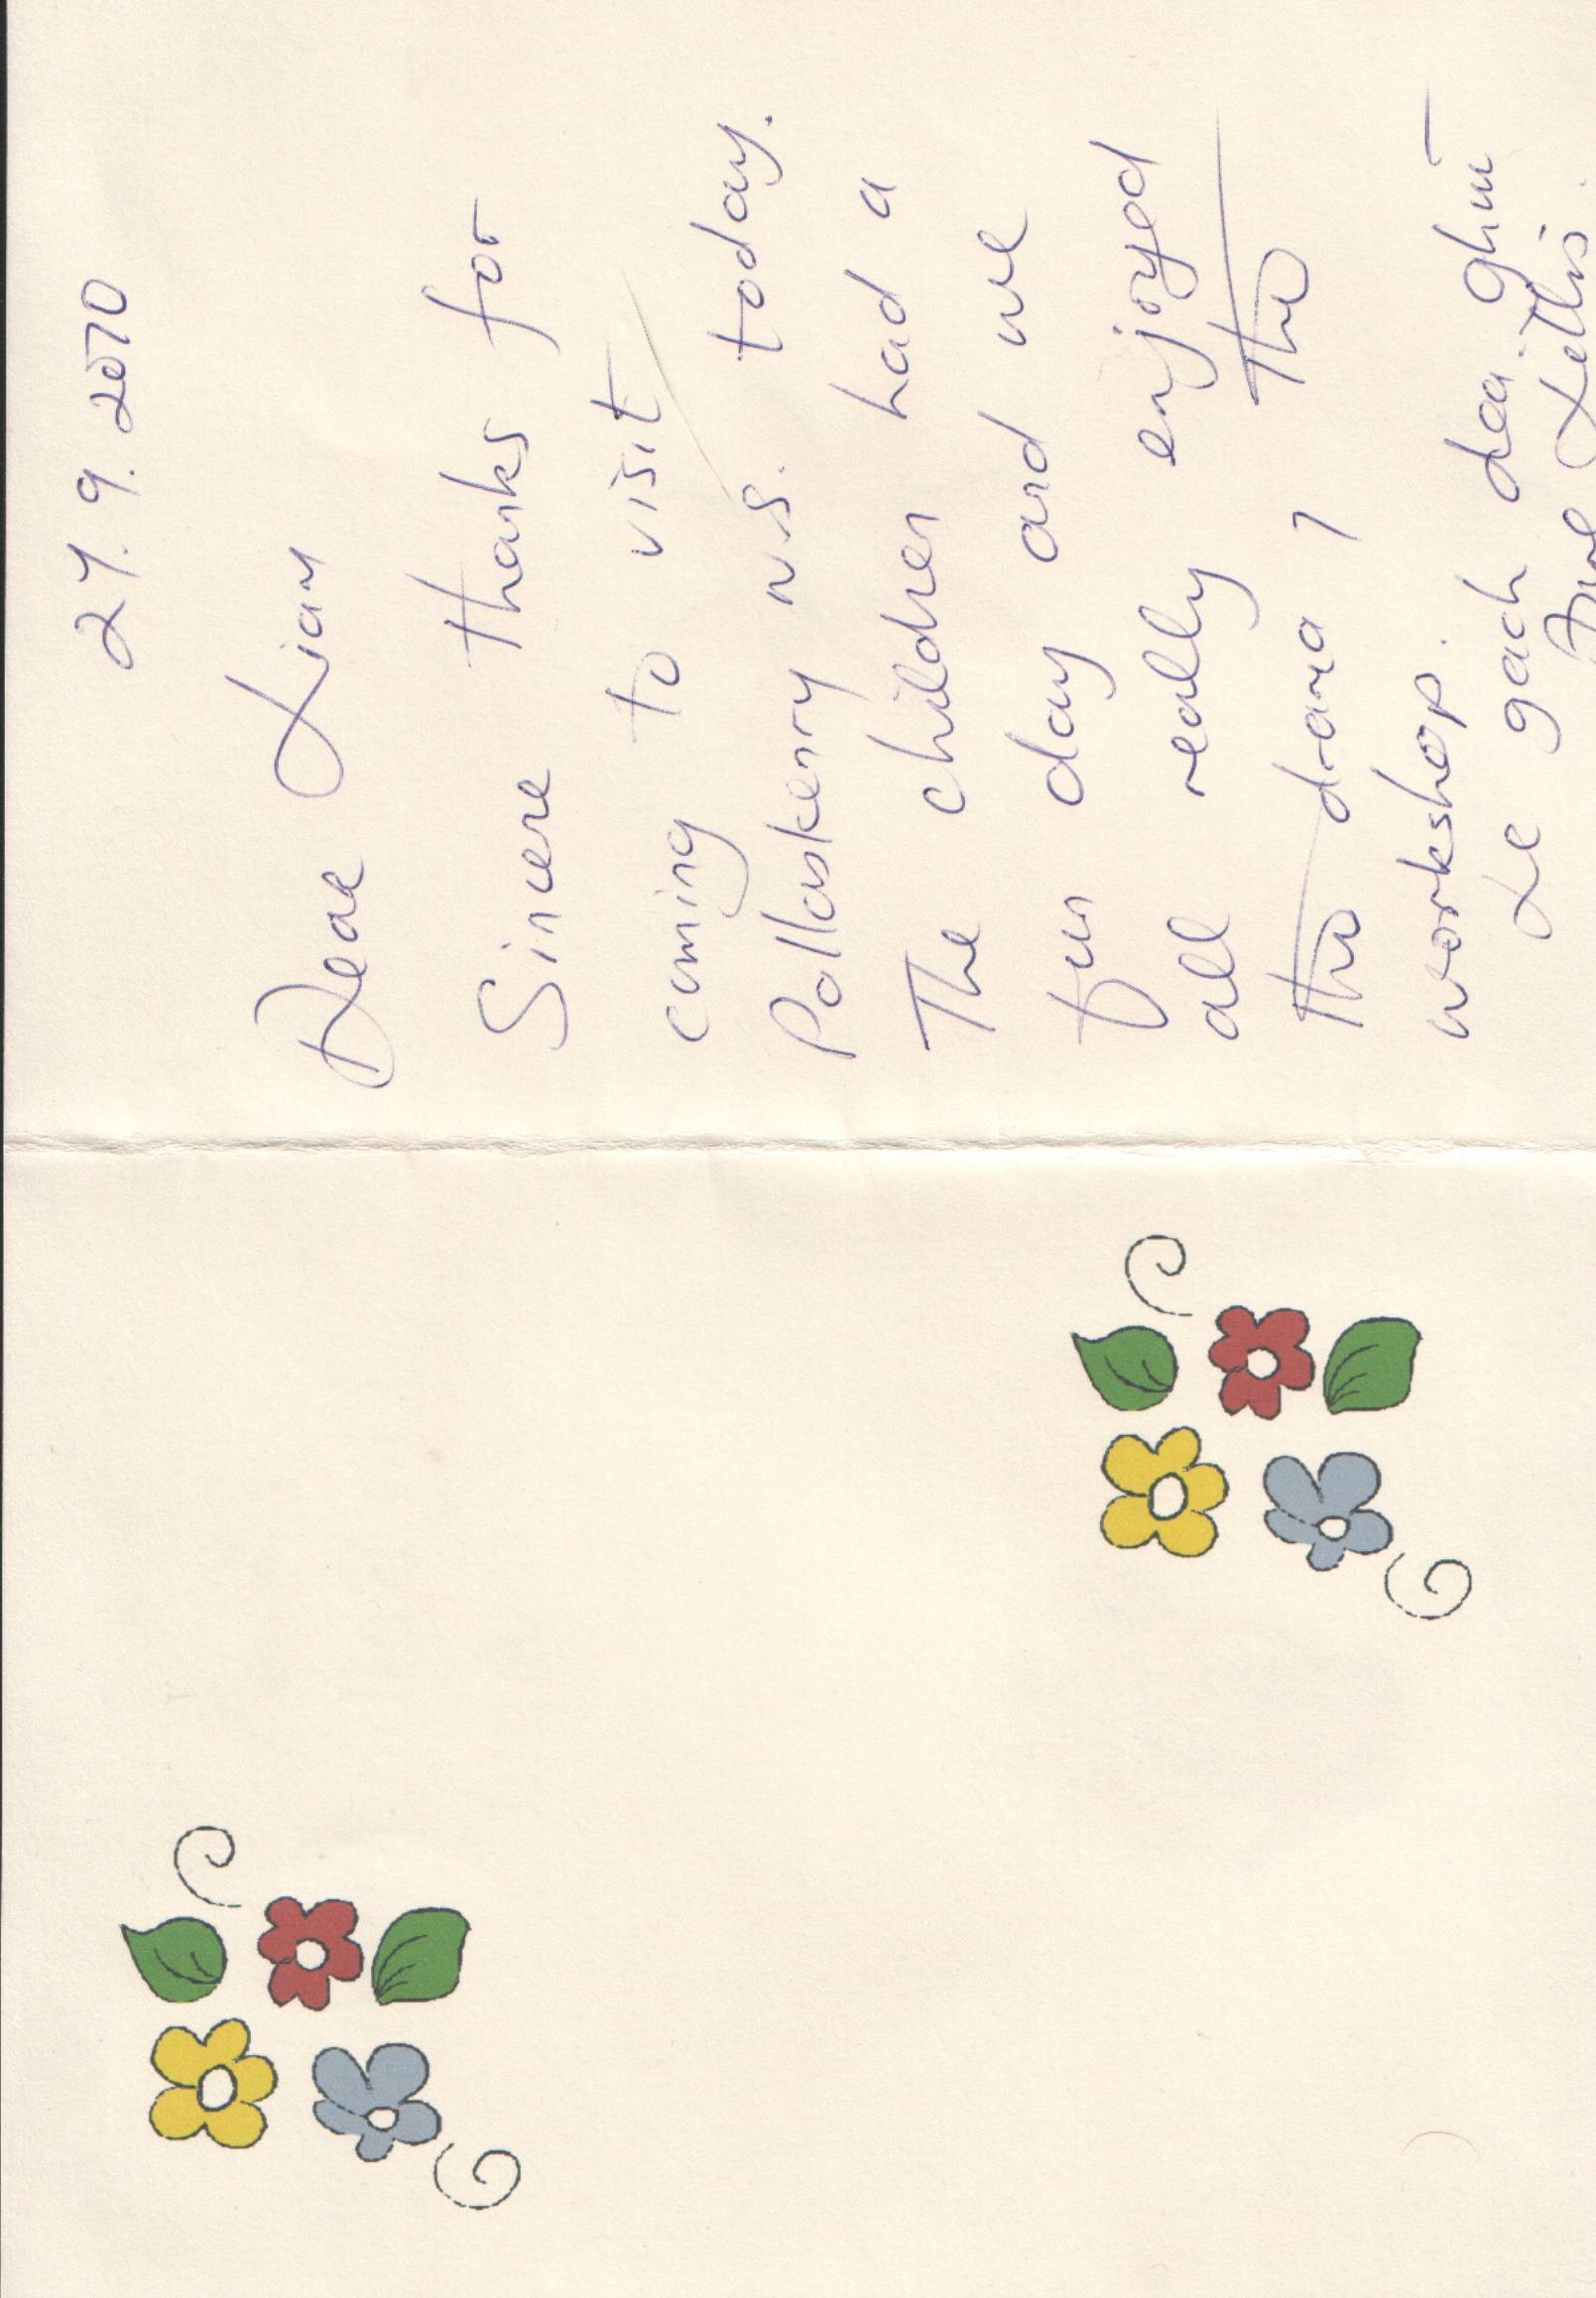 27.9.2010
Dear Liam
Sincere thanks for
coming to visit
Pallaskenry N.S. today.
The children had a
fun day and we
all really enjoyed
the drama ⁊ the
workshop.
Le gach dea ghuí